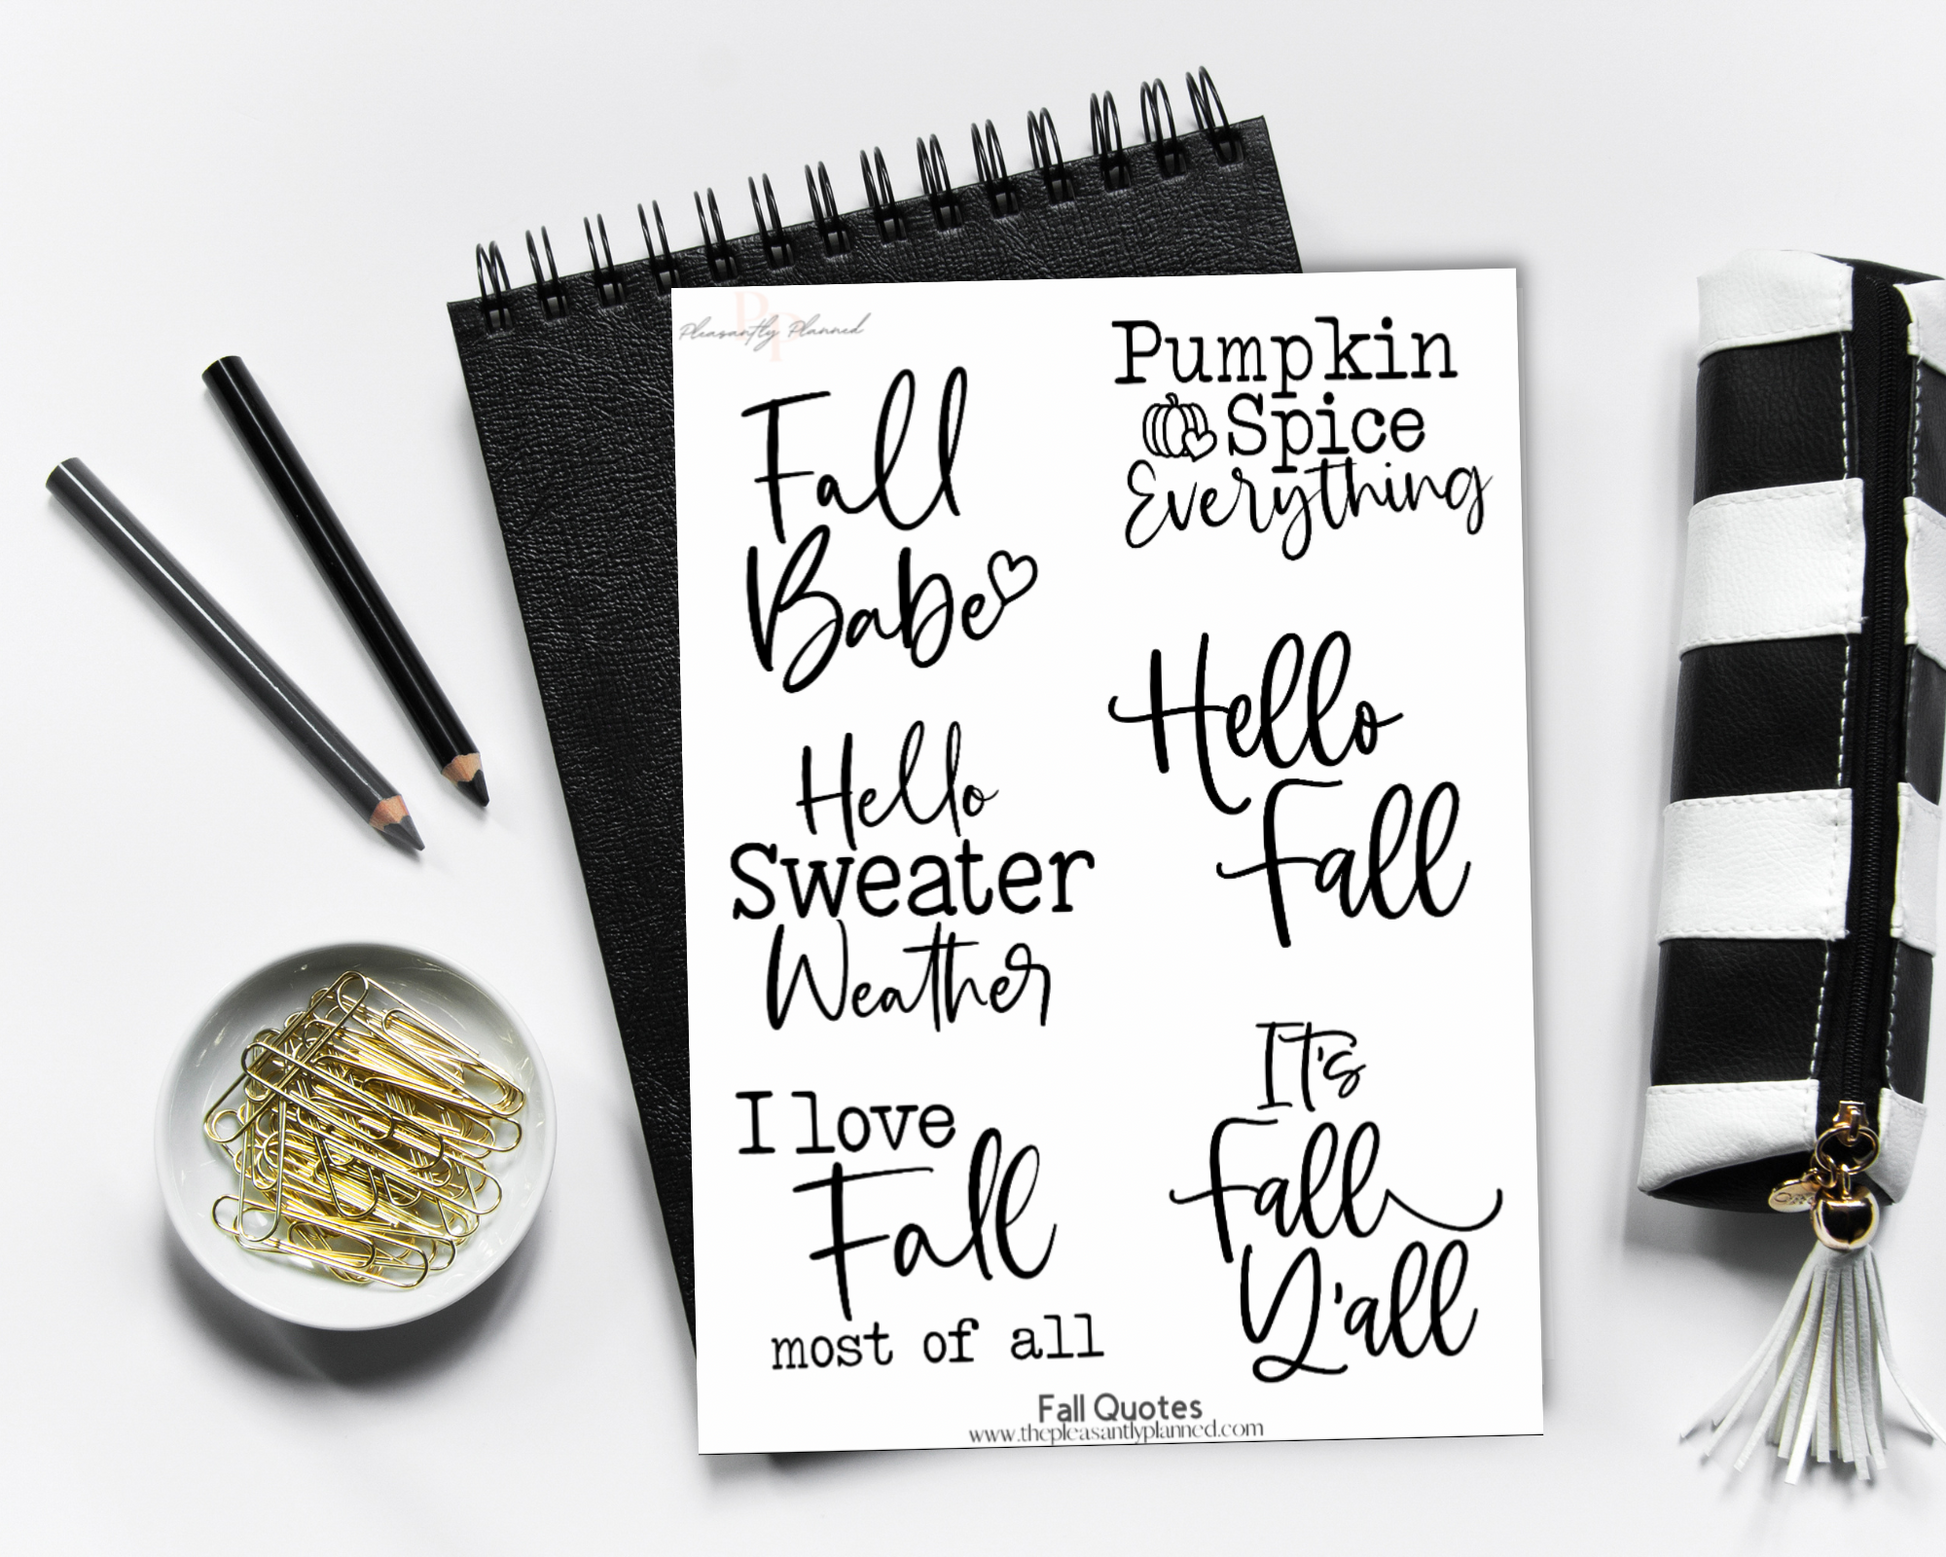 Pleasantly Planned
PP
Fall
Babe
Pumpkin
Spice
Everything
Hello
Sweater
Weather
Hello
Fall
I love
Fall
most of all
It's
Fall
Y'all
Fall Quotes
www.thepleasantlyplanned.com